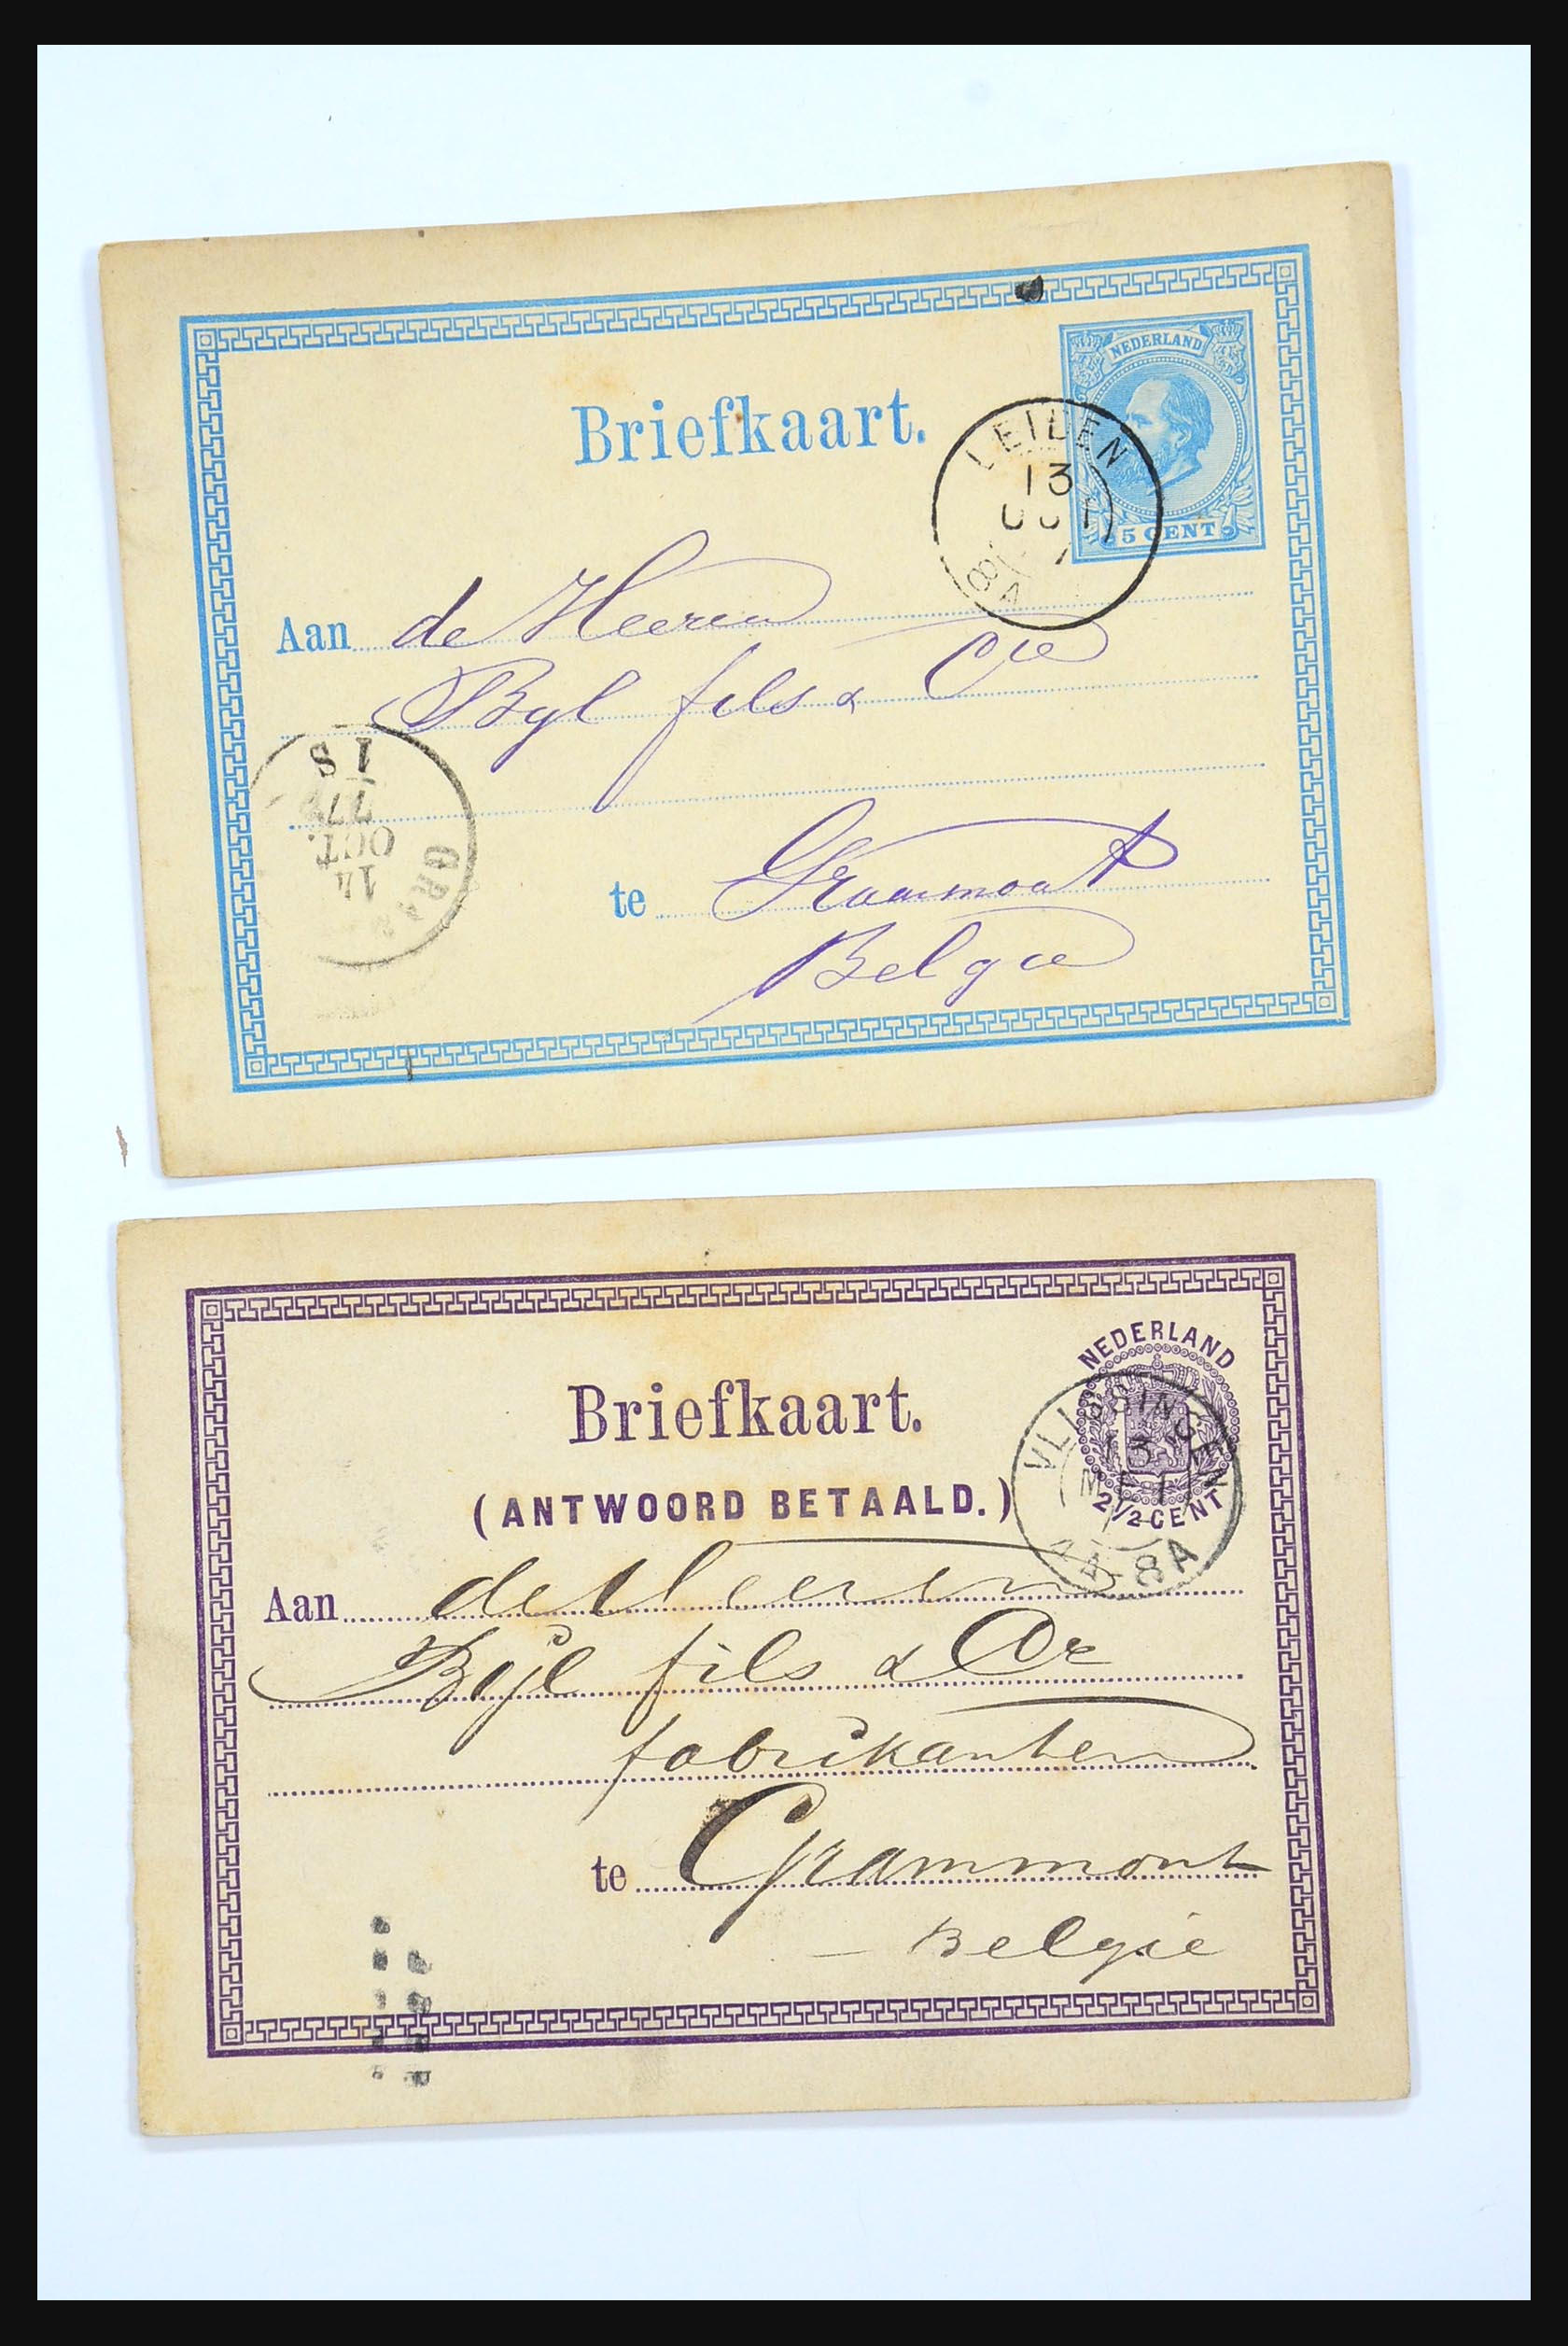 NEDERLAND
Briefkaart.
LEIDEN
13
OCT
8A
5 CENT
Aan de Heeren
Byl fils & Cie
1 S
77
OCT.
14
GRAM
te Grammont
Belgie
NEDERLAND
Briefkaart.
VLISSINGEN
13
8A
2½ CENT
(ANTWOORD BETAALD.)
Aan de Heeren
Bijl fils & Ce
fabrikanten
te Grammont
- Belgie